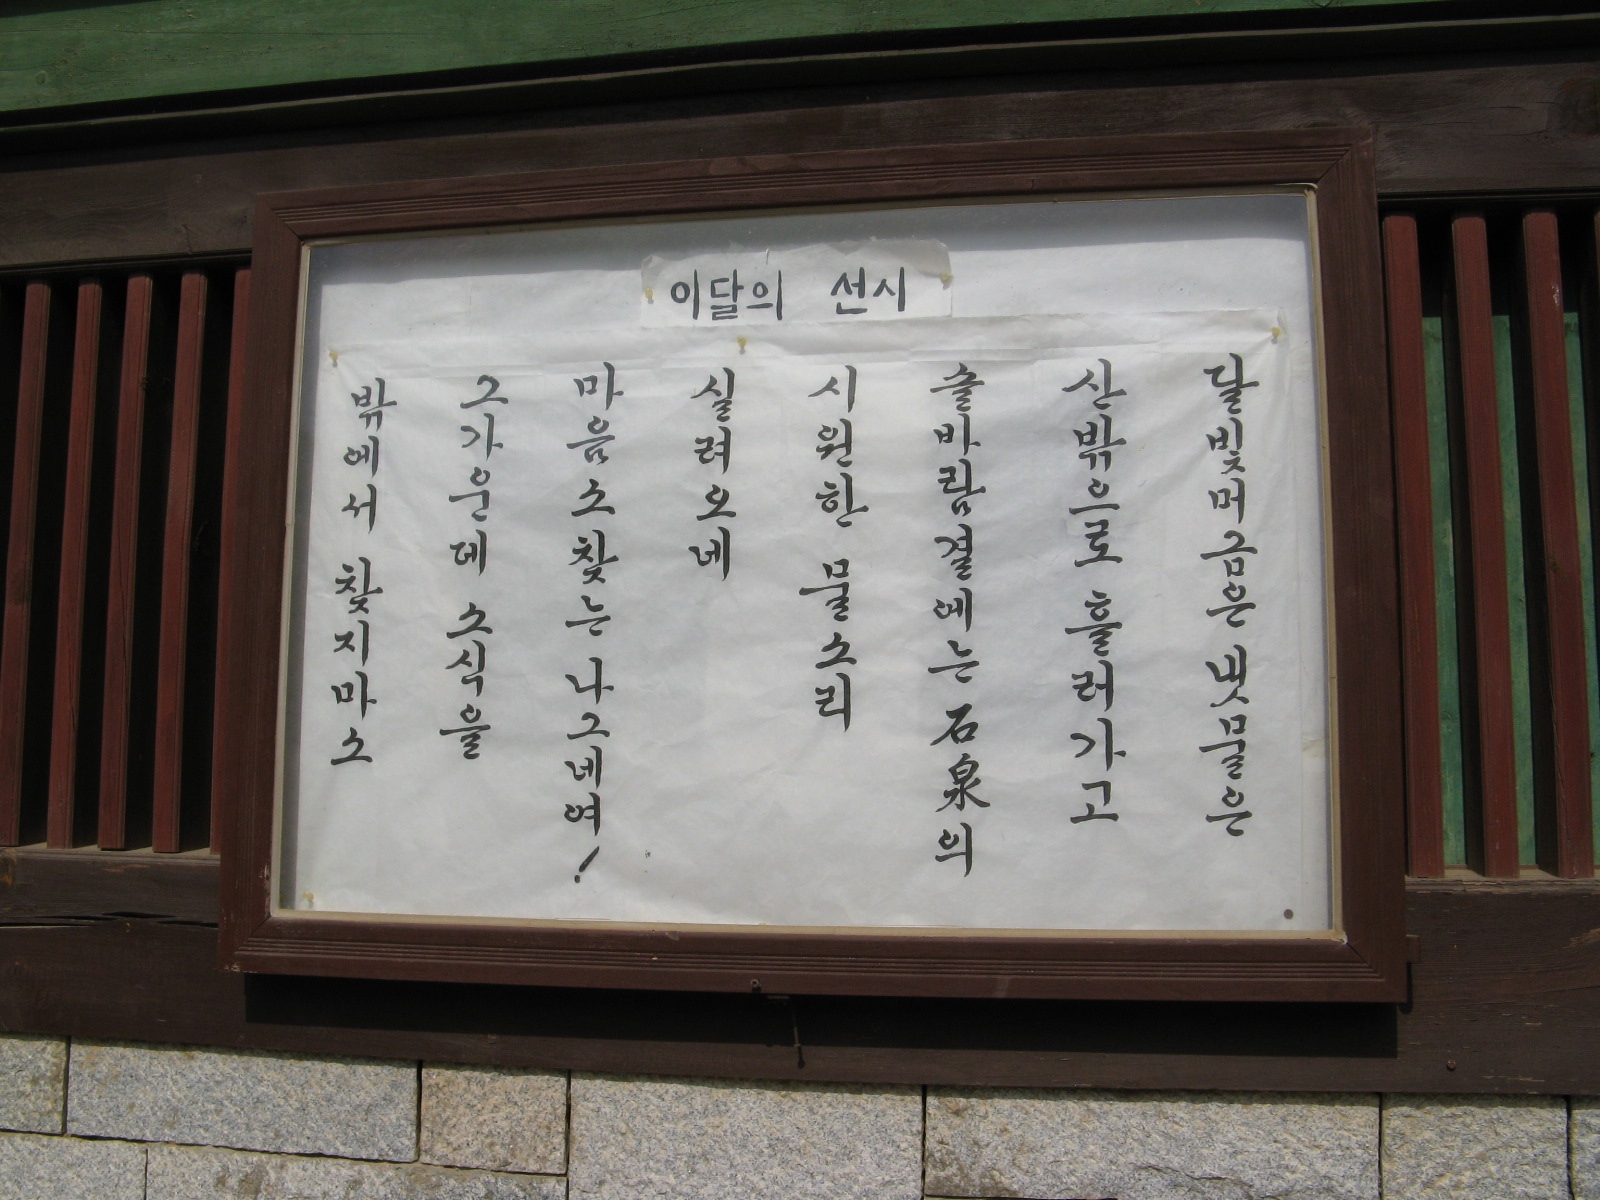 이달의 선시
달빛머금은 냇물은
산밖으로 흘러가고
솔바람결에는 石泉의
시원한 물소리
실려오네
마음소찾는 나그네여!
그가운데 소식을
밖에서 찾지마소